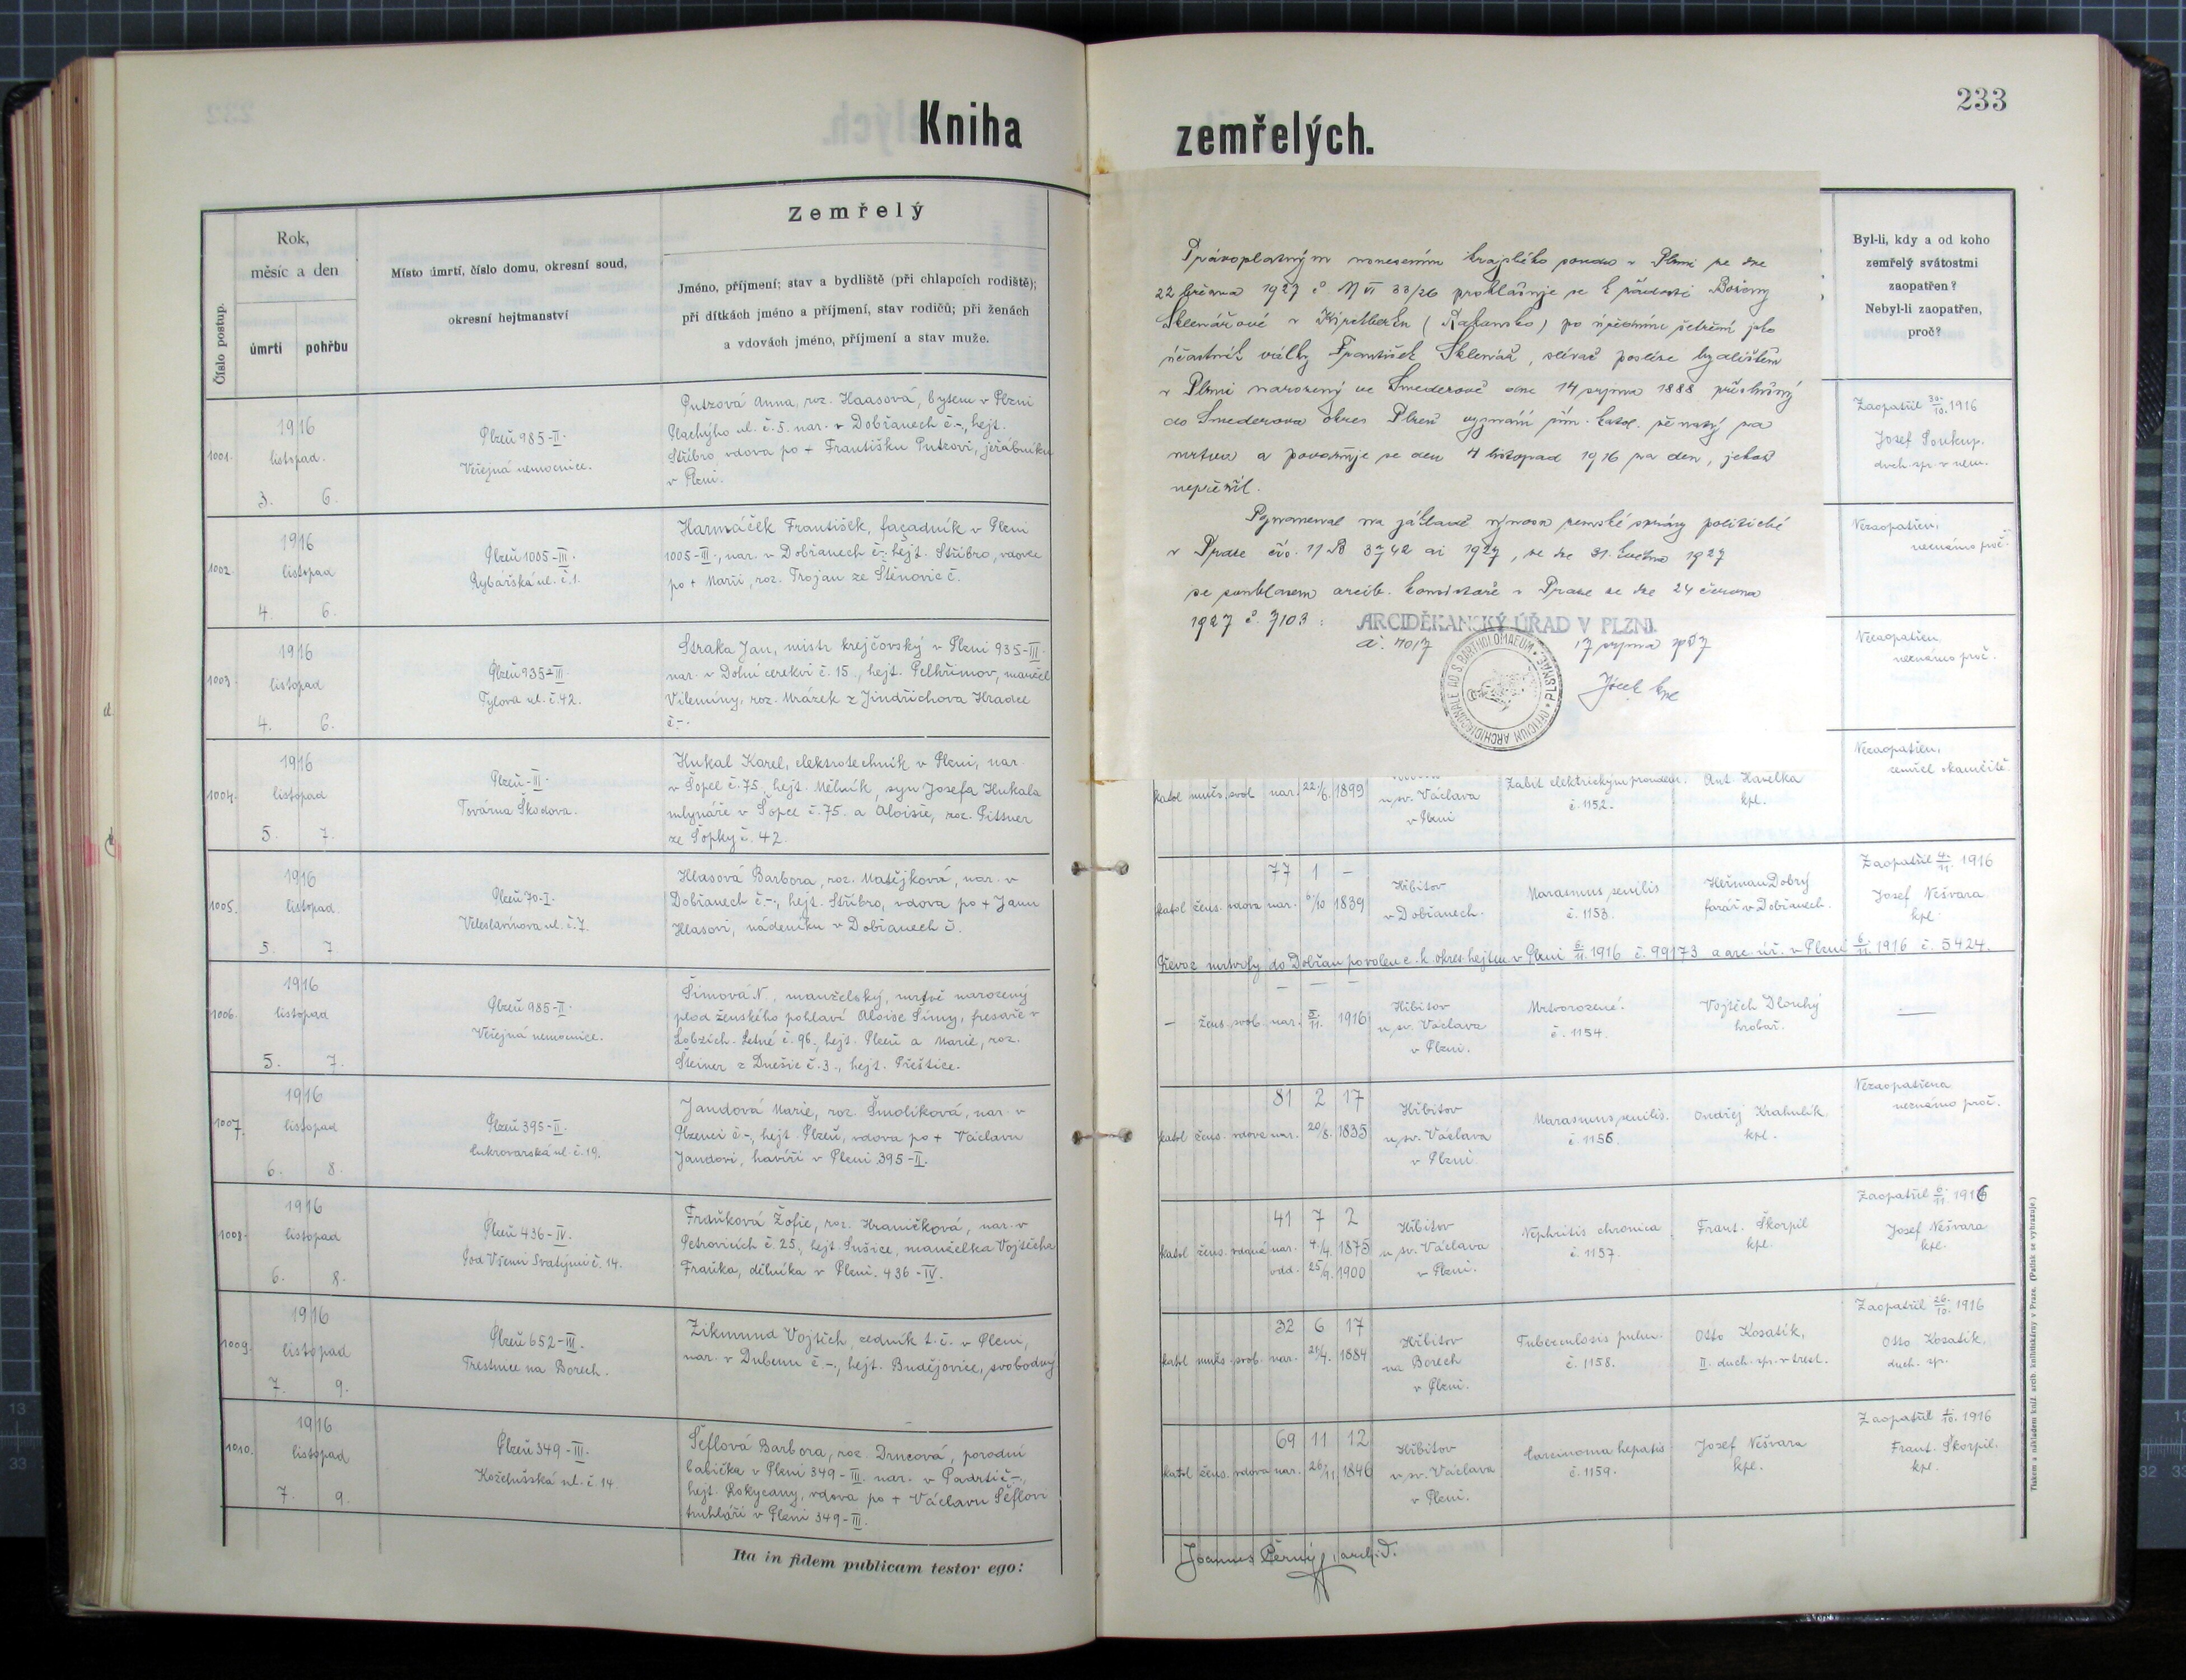 Kniha
zemřelých.
233
Číslo postup.
Rok,
měsíc a den
úmrtí
pohřbu
Místo úmrtí, číslo domu, okresní soud,
okresní hejtmanství
Zemřelý
Jméno, příjmení; stav a bydliště (při chlapcích rodiště);
při dítkách jméno a příjmení, stav rodičů; při ženách
a vdovách jméno, příjmení a stav muže.
1001.
1916
listopad.
3. 6.
Plzeň 985-II.
Veřejná nemocnice.
Putzová Anna, roz. Haasová, bytem v Plzni
Plachýho ul. č. 5. nar. v Dobřanech č.-, hejt.
Stříbro vdova po + Františku Putzovi, jeřábníku
v Plzni.
1002.
1916
listopad
4. 6.
Plzeň 1005-III.
Rybářská ul. č. 1.
Harmáček František, façadník v Plzni
1005-III., nar. v Dobřanech č.-, hejt. Stříbro, vdovec
po + Marii, roz. Trojan ze Štěnovic č.
1003.
1916
listopad
4. 6.
Plzeň 935-III.
Tylova ul. č. 42.
Straka Jan, mistr krejčovský v Plzni 935-III.
nar. v Dolní cerekvi č. 15., hejt. Pelhřimov, manžel
Vilemíny, roz. Mrázek z Jindřichova Hradce
č.-.
1004.
1916
listopad
5. 7.
Plzeň-III.
Továrna Škodova.
Hukal Karel, elektrotechnik v Plzni, nar.
v Šopce č. 75., hejt. Mělník, syn Josefa Hukala
mlynáře v Šopce č. 75. a Aloisie, roz. Pittner
ze Šopky č. 42.
1005.
1916
listopad
5. 7
Plzeň 70-I.
Veleslavínova ul. č. 7.
Hlasová Barbora, roz. Matějková, nar. v
Dobřanech č.-, hejt. Stříbro, vdova po + Janu
Hlasovi, nádeníku v Dobřanech č.
1006.
1916
listopad
5. 7.
Plzeň 985-II.
Veřejná nemocnice.
Šimová N., manželský, mrtvě narozený
plod ženského pohlaví Aloise Šimy, fresaře v
Lobzích-Letné č. 96., hejt. Plzeň a Marie, roz.
Šteiner z Dnešic č. 3., hejt. Přeštice.
1007.
1916
listopad
6. 8.
Plzeň 395-II.
Cukrovarská ul. č. 19.
Jandová Marie, roz. Šmolíková, nar. v
Plzenci č.-, hejt. Plzeň, vdova po + Václavu
Jandovi, havíři v Plzni 395-II.
1008.
1916
listopad
6. 8.
Plzeň 436-IV.
Pod Všemi Svatými č. 14.
Fraňková Žofie, roz. Hraničková, nar. v
Petrovicích č. 25., hejt. Sušice, manželka Vojtěcha
Fraňka, dělníka v Plzni. 436-IV.
1009.
1916
listopad
7. 9.
Plzeň 652-III.
Trestnice na Borech.
Zikmund Vojtěch, zedník t.č. v Plzni,
nar. v Dubenu č.-, hejt. Budějovice, svobodný
1010.
1916
listopad
7. 9.
Plzeň 349-III.
Koželužská ul. č. 14.
Šeflová Barbora, roz. Drncová, porodní
babička v Plzni 349-III. nar. v Padrti č.-,
hejt. Rokycany, vdova po + Václavu Šeflovi
truhláři v Plzni 349-III.
Ita in fidem publicam testor ego:
Právoplatným usnesením krajského soudu v Plzni ze dne
22 března 1927 č. VI 33/26 prohlašuje se k žádosti Boženy
Sklenářové v (Rakousko) po úředním šetření jako
účastník války František Sklenář, slévač posléze bydlištěm
v Plzni narozený ve Smederově dne 14 srpna 1888 příslušný
do Smederova okres Plzeň vyznání řím. katol. ženatý za
mrtva a považuje se den 4 listopad 1916 za den, jehož
nepřežil.
Poznamenal na základě výnosu zemské správy politické
v Praze čís. 3742 ai 1927, ze dne 31. května 1927
se souhlasem arcib. konsistoře v Praze ze dne 24 června
1927 č. 7103:
ARCIDĚKANSKÝ ÚŘAD V PLZNI.
17 srpna
OFFICIUM ARCHIDIACONALE AD S. BARTHOLOMAEUM PLSNAE
Byl-li, kdy a od koho
zemřelý svátostmi
zaopatřen?
Nebyl-li zaopatřen,
proč?
Zaopatřil 30./10. 1916
Josef Soukup.
duch. sp. v nem.
Nezaopatřen,
neznámo proč.
Nezaopatřen,
neznámo proč.
Nezaopatřen,
zemřel okamžitě.
katol. mužs. svob. nar. 22/6. 1899
u sv. Václava
v Plzni
Zabit elektrickým proudem.
č. 1152.
Ant. Havelka
kpl.
77 1 -
katol. žens. vdova nar. /10 1839
Hřbitov
v Dobřanech.
Marasmus senilis
č. 1153.
Heřman Dobrý
farář v Dobřanech.
Zaopatřil 4./11. 1916
Josef Nešvara
kpl.
Převoz mrtvoly do Dobřan povolen c. k. okres. hejtm. v Plzni 6./11. 1916 č. 99173 a arc. úř. v Plzni 6./11. 1916 č. 5424.
- - -
- žens. svob. nar. 5./11. 1916
Hřbitov
u sv. Václava
v Plzni.
Mrtvorozené.
č. 1154.
Vojtěch Dlouhý
hrobař.
81 2 17
katol. žens. vdova nar. 20/8. 1835
Hřbitov
u sv. Václava
v Plzni
Marasmus senilis.
č. 1156.
Ondřej Krahulík
kpl.
Nezaopatřena
neznámo proč.
41 7 2
katol. žens. vdaná nar. 4./4. 1875
vdd. 25/9. 1900
Hřbitov
u sv. Václava
v Plzni.
Nephritis chronica
č. 1157.
Frant. Škorpil
kpl.
Zaopatřil 6./11. 1916
Josef Nešvara
kpl.
32 6 17
katol. mužs. svob. nar. 21/4. 1884
Hřbitov
na Borech
v Plzni.
Tuberculosis pulm.
č. 1158.
Otto Kosatík,
II. duch. sp. v trest.
Zaopatřil 26./10. 1916
Otto Kosatík.
duch. sp.
69 11 12
katol. žens. vdova nar. 26/11 1846
Hřbitov
u sv. Václava
v Plzni.
Carcinoma hepatis
č. 1159.
Josef Nešvara
kpl.
Zaopatřil /10. 1916
Frant. Škorpil.
kpl.
Joannes Černý, archid.
Tiskem a nákladem kníž. arcib. knihtiskárny v Praze. (Patisk se vyhrazuje.)